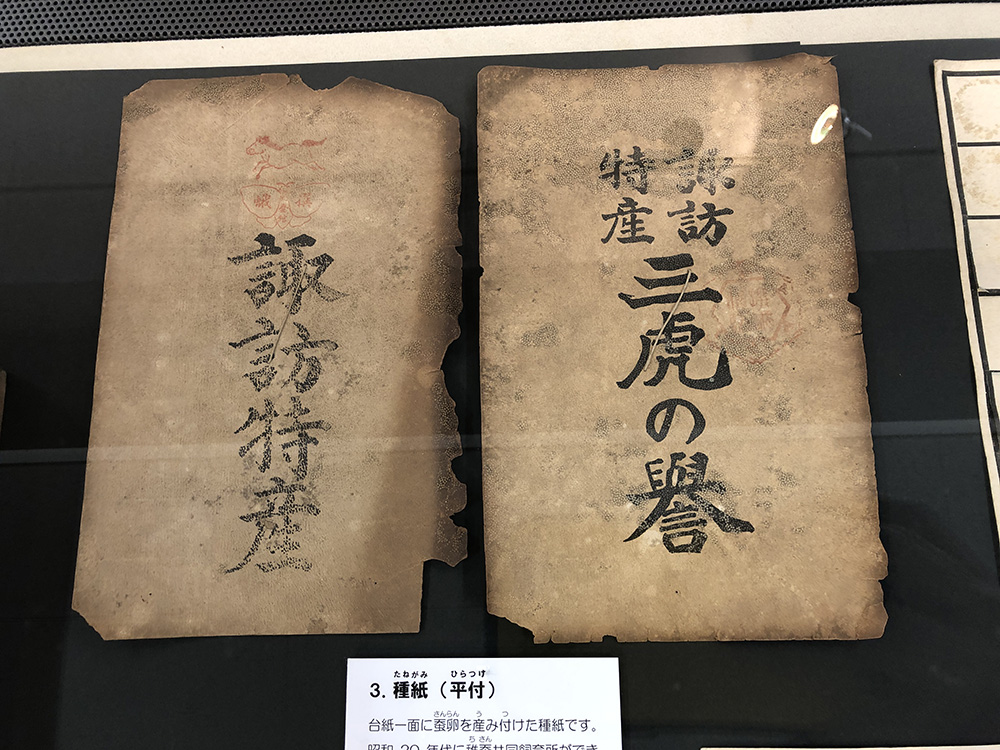 諏訪特産
諏訪
特産
三虎の譽
3. 種紙（平付）
たねがみ ひらつけ
台紙一面に蚕卵を産み付けた種紙です。
さんらん う つ
昭和 20 年代に稚蚕共同飼育所ができ
ちさん